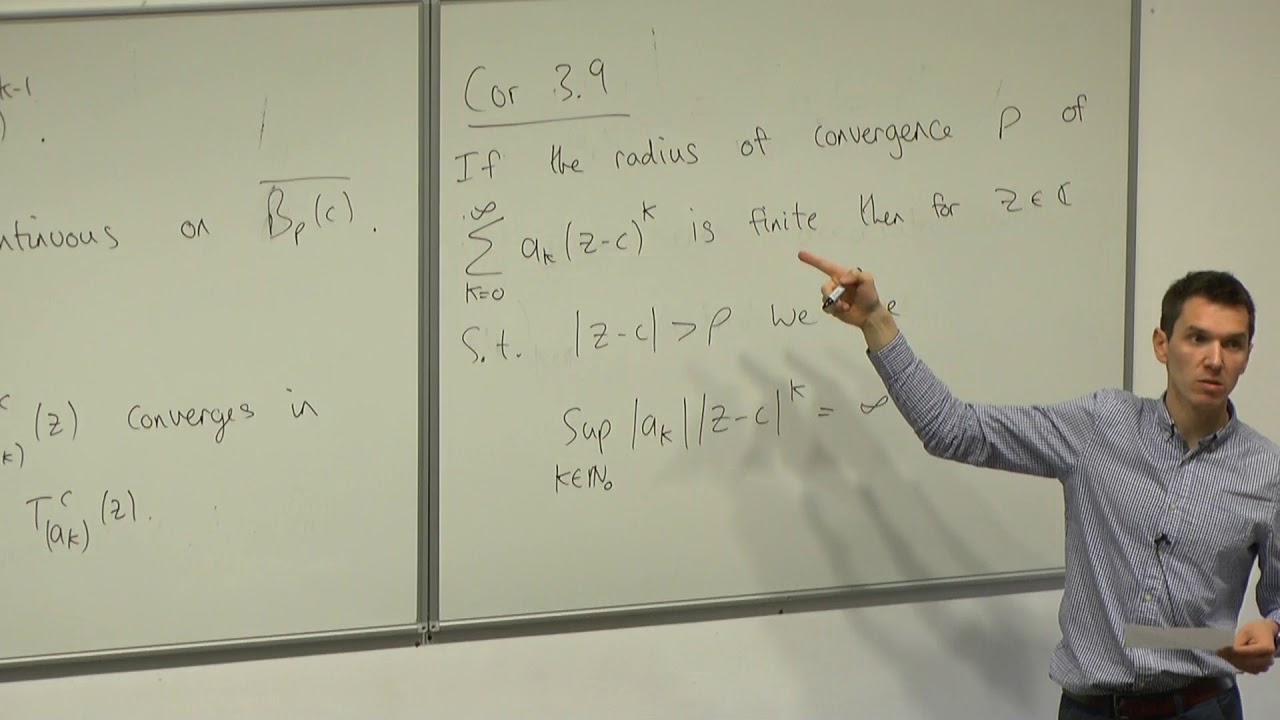 k-1
) .
ntinuous on B̅ρ(c).
c
k) (z) converges in
T^c_(ak) (z).
Cor 3.9
If the radius of convergence ρ of
∞
∑ ak(z-c)^k is finite then for z∈ℂ
k=0
S.t. |z-c| > ρ we
Sup |ak||z-c|^k = ∞
k∈ℕ₀